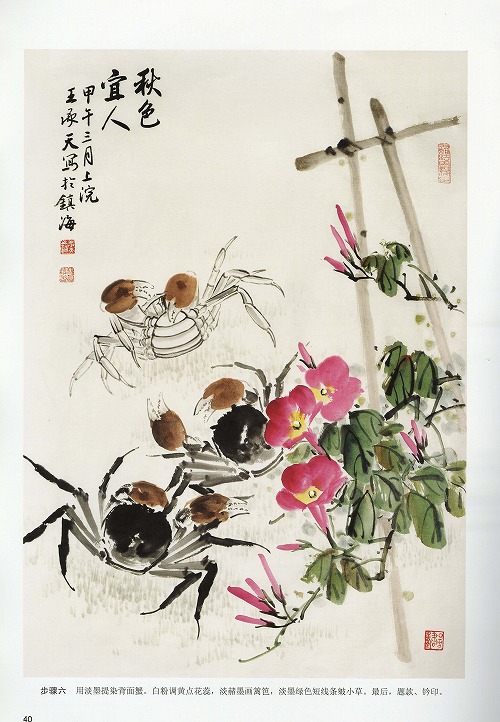 秋色
宜人
甲午三月上浣
王承天写於鎮海
步骤六 用淡墨提染背面蟹。白粉调黄点花蕊，淡赭墨画篱笆，淡墨绿色短线条皴小草。最后，题款、钤印。
40